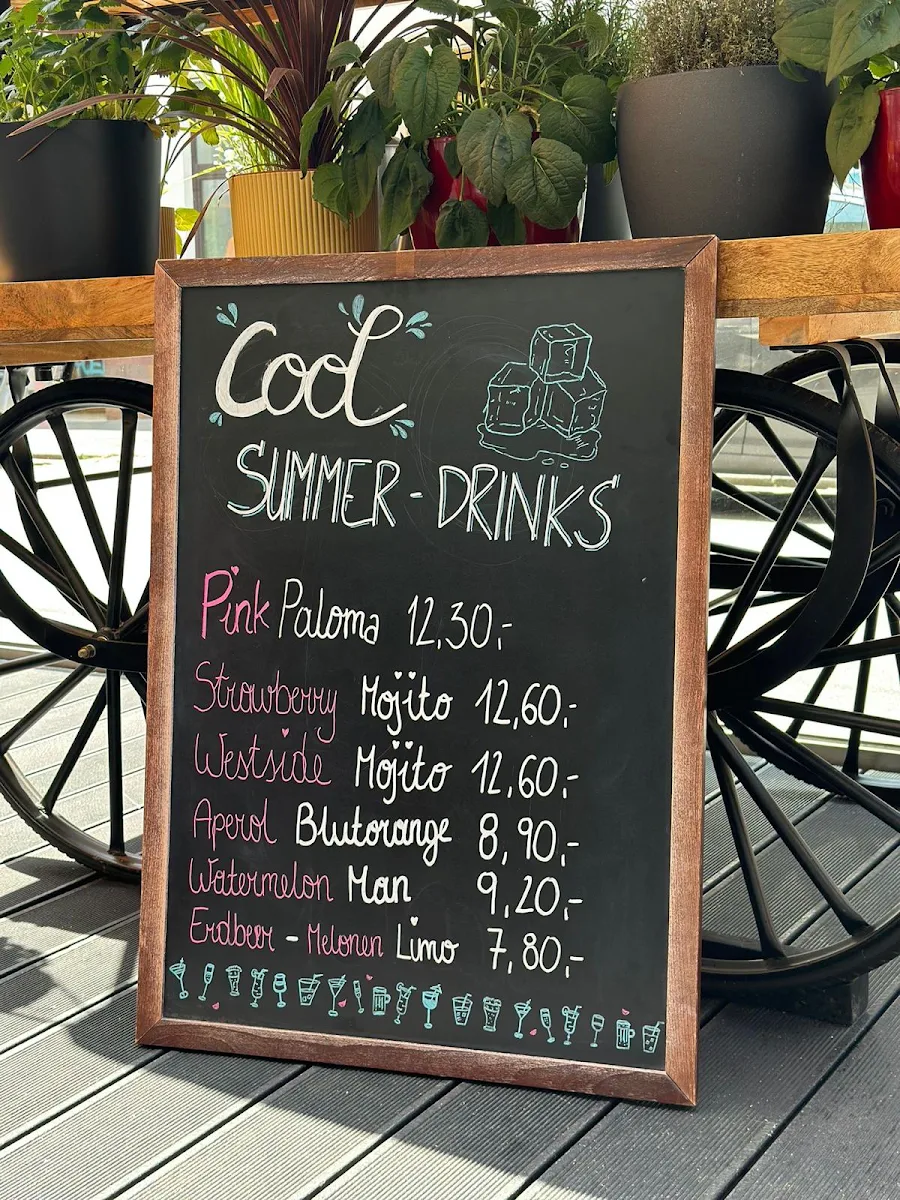 Cool
SUMMER-DRINKS
Pink Paloma 12,30,-
Strawberry Mojito 12,60,-
Westside Mojito 12,60,-
Aperol Blutorange 8,90,-
Watermelon Man 9,20,-
Erdbeer - Melonen Limo 7,80,-